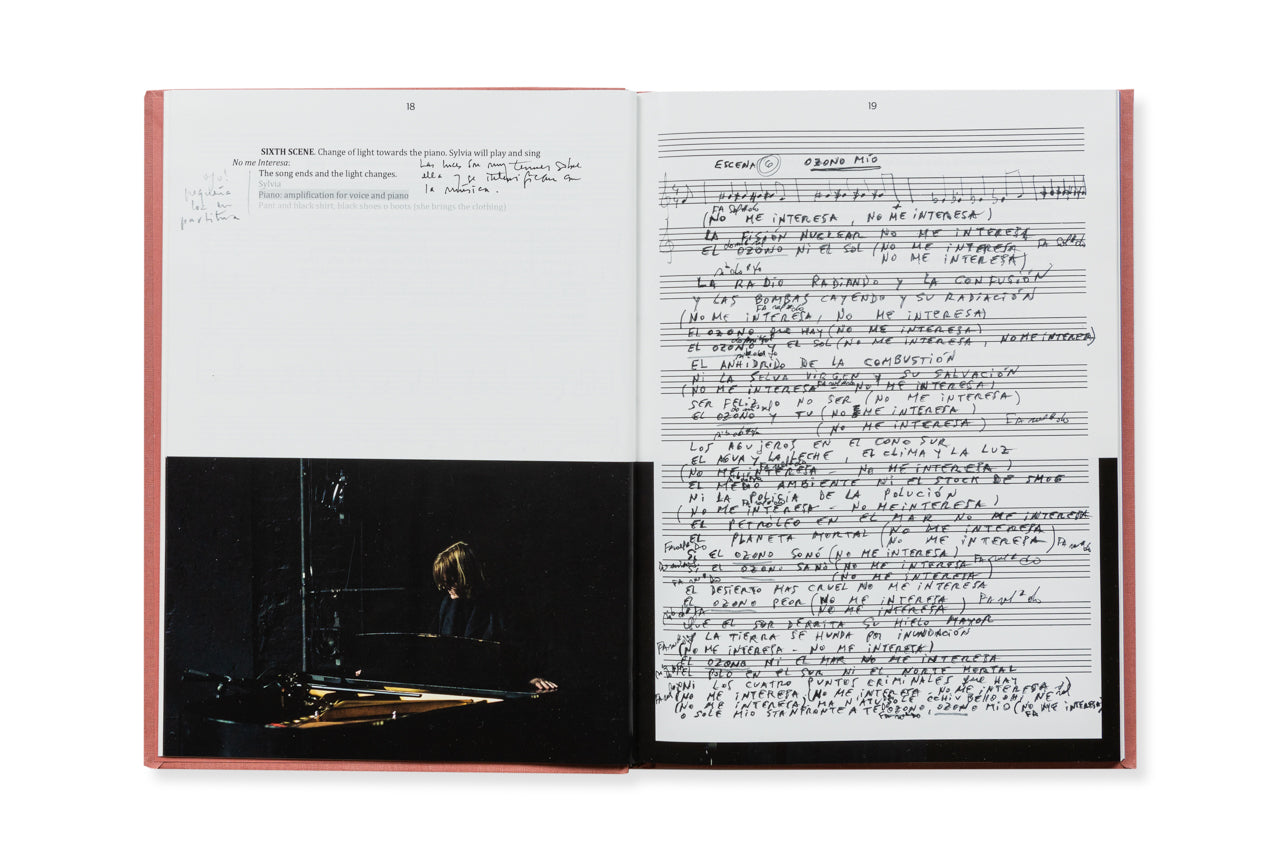 18
SIXTH SCENE. Change of light towards the piano. Sylvia will play and sing
No me Interesa:
The song ends and the light changes.
Sylvia
Piano: amplification for voice and piano
Pant and black shirt, black shoes o boots (she brings the clothing)
Las luces son muy tenues sobre
ella y se intensifican con
la música.
ojo!
pequeña
luz en
partitura
19
ESCENA 6 OZONO MIO
(NO ME INTERESA, NO ME INTERESA)
LA FISIÓN NUCLEAR NO ME INTERESA
EL OZONO NI EL SOL (NO ME INTERESA
NO ME INTERESA)
LA RADIO RADIANDO Y LA CONFUSIÓN
Y LAS BOMBAS CAYENDO Y SU RADIACIÓN
(NO ME INTERESA, NO ME INTERESA)
EL OZONO QUE HAY (NO ME INTERESA)
EL OZONO Y EL SOL (NO ME INTERESA, NO ME INTERESA)
EL ANHIDRIDO DE LA COMBUSTIÓN
NI LA SELVA VIRGEN Y SU SALVACIÓN
(NO ME INTERESA - NO ME INTERESA)
SER FELIZ O NO SER (NO ME INTERESA)
EL OZONO Y TU (NO ME INTERESA)
(NO ME INTERESA)
LOS AGUJEROS EN EL CONO SUR
EL AGUA Y LA LECHE, EL CLIMA Y LA LUZ
(NO ME INTERESA - NO ME INTERESA)
EL MEDIO AMBIENTE NI EL STOCK DE SMOG
NI LA POLICIA DE LA POLUCIÓN
(NO ME INTERESA - NO ME INTERESA)
EL PETRÓLEO EN EL MAR NO ME INTERESA
EL PLANETA MORTAL (NO ME INTERESA)
(NO ME INTERESA)
SI EL OZONO SONÓ (NO ME INTERESA)
SI EL OZONO SANÓ (NO ME INTERESA)
(NO ME INTERESA)
EL DESIERTO MAS CRUEL NO ME INTERESA
EL OZONO PEOR (NO ME INTERESA)
(NO ME INTERESA)
QUE EL SUR DERRITA SU HIELO MAYOR
Y LA TIERRA SE HUNDA POR INUNDACIÓN
(NO ME INTERESA - NO ME INTERESA)
EL OZONO NI EL MAR NO ME INTERESA
EL POLO EN EL SUR NI EL NORTE MORTAL
NI LOS CUATRO PUNTOS CRIMINALES QUE HAY
(NO ME INTERESA, (NO ME INTERESA NO ME INTERESA)
(NO ME INTERESA) MA N'ATU SOLE CCHIU BELLO OHI NE
O SOLE MIO STA NFRONTE A TE OZONO, OZONO MIO (NO ME INTERESA)